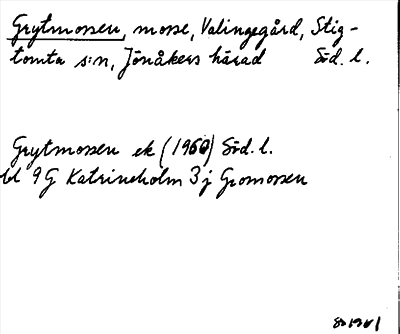 Grytmossen, mosse, Valingegård, Stig-
tomta s:n, Jönåkers härad Söd. l.
Grytmossen ek (1960) Söd. l.
bl 9G Katrineholm 3j Gromossen